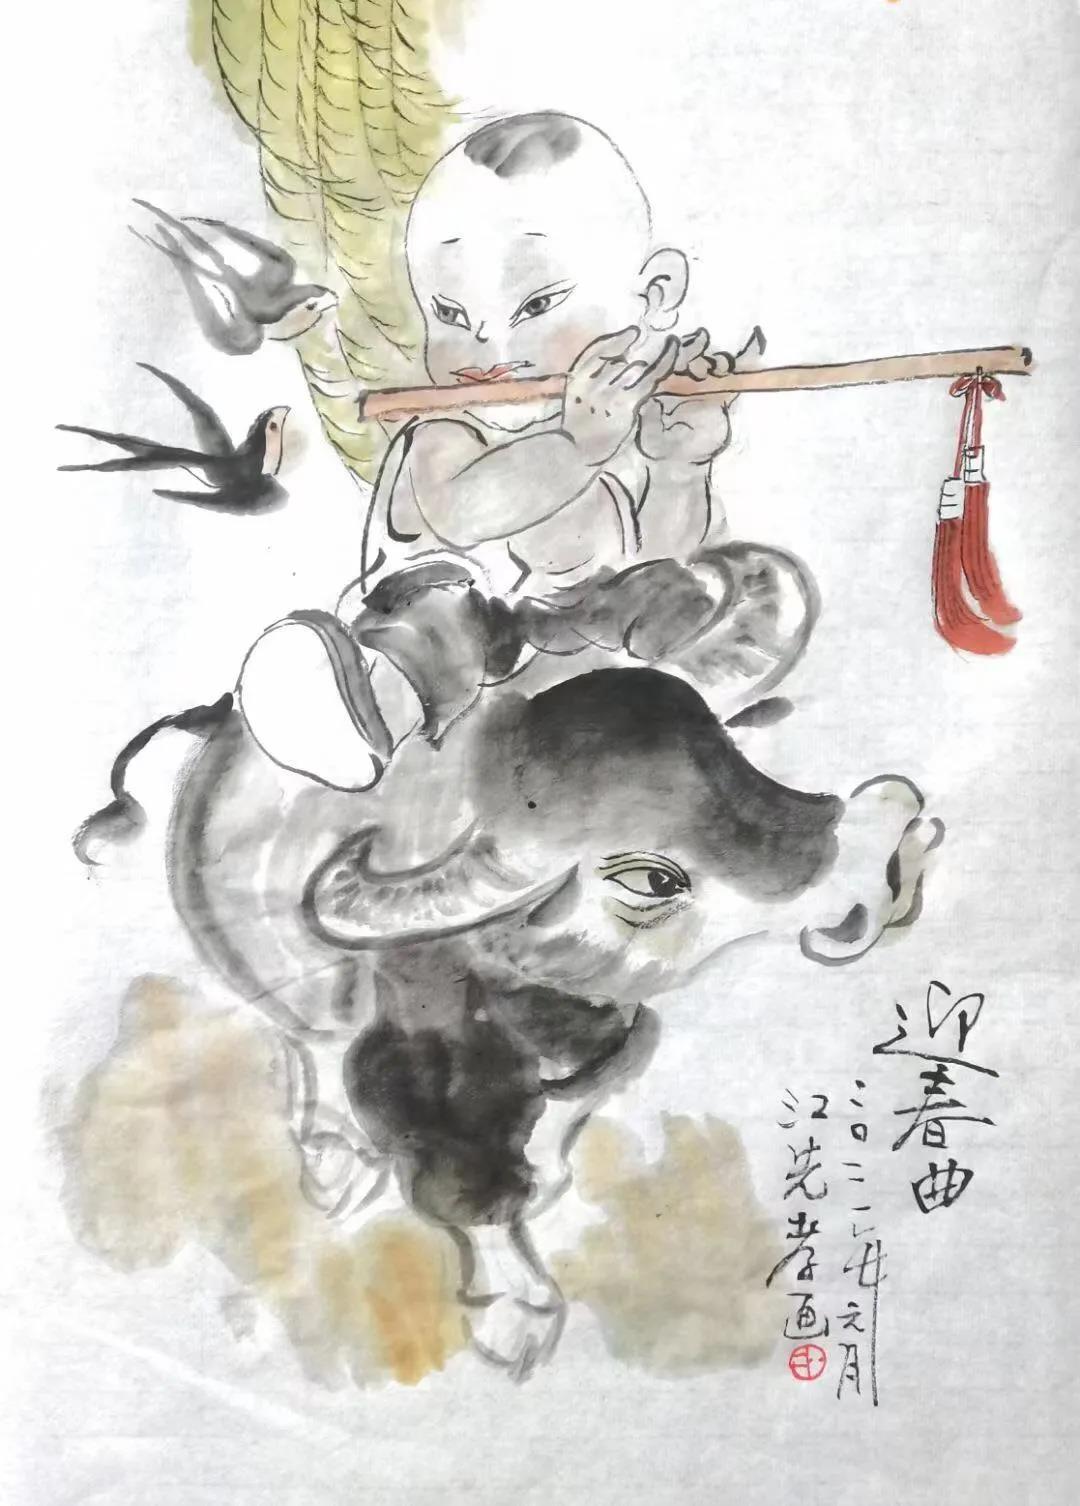 迎春曲
二〇二一年元月
江先孝画